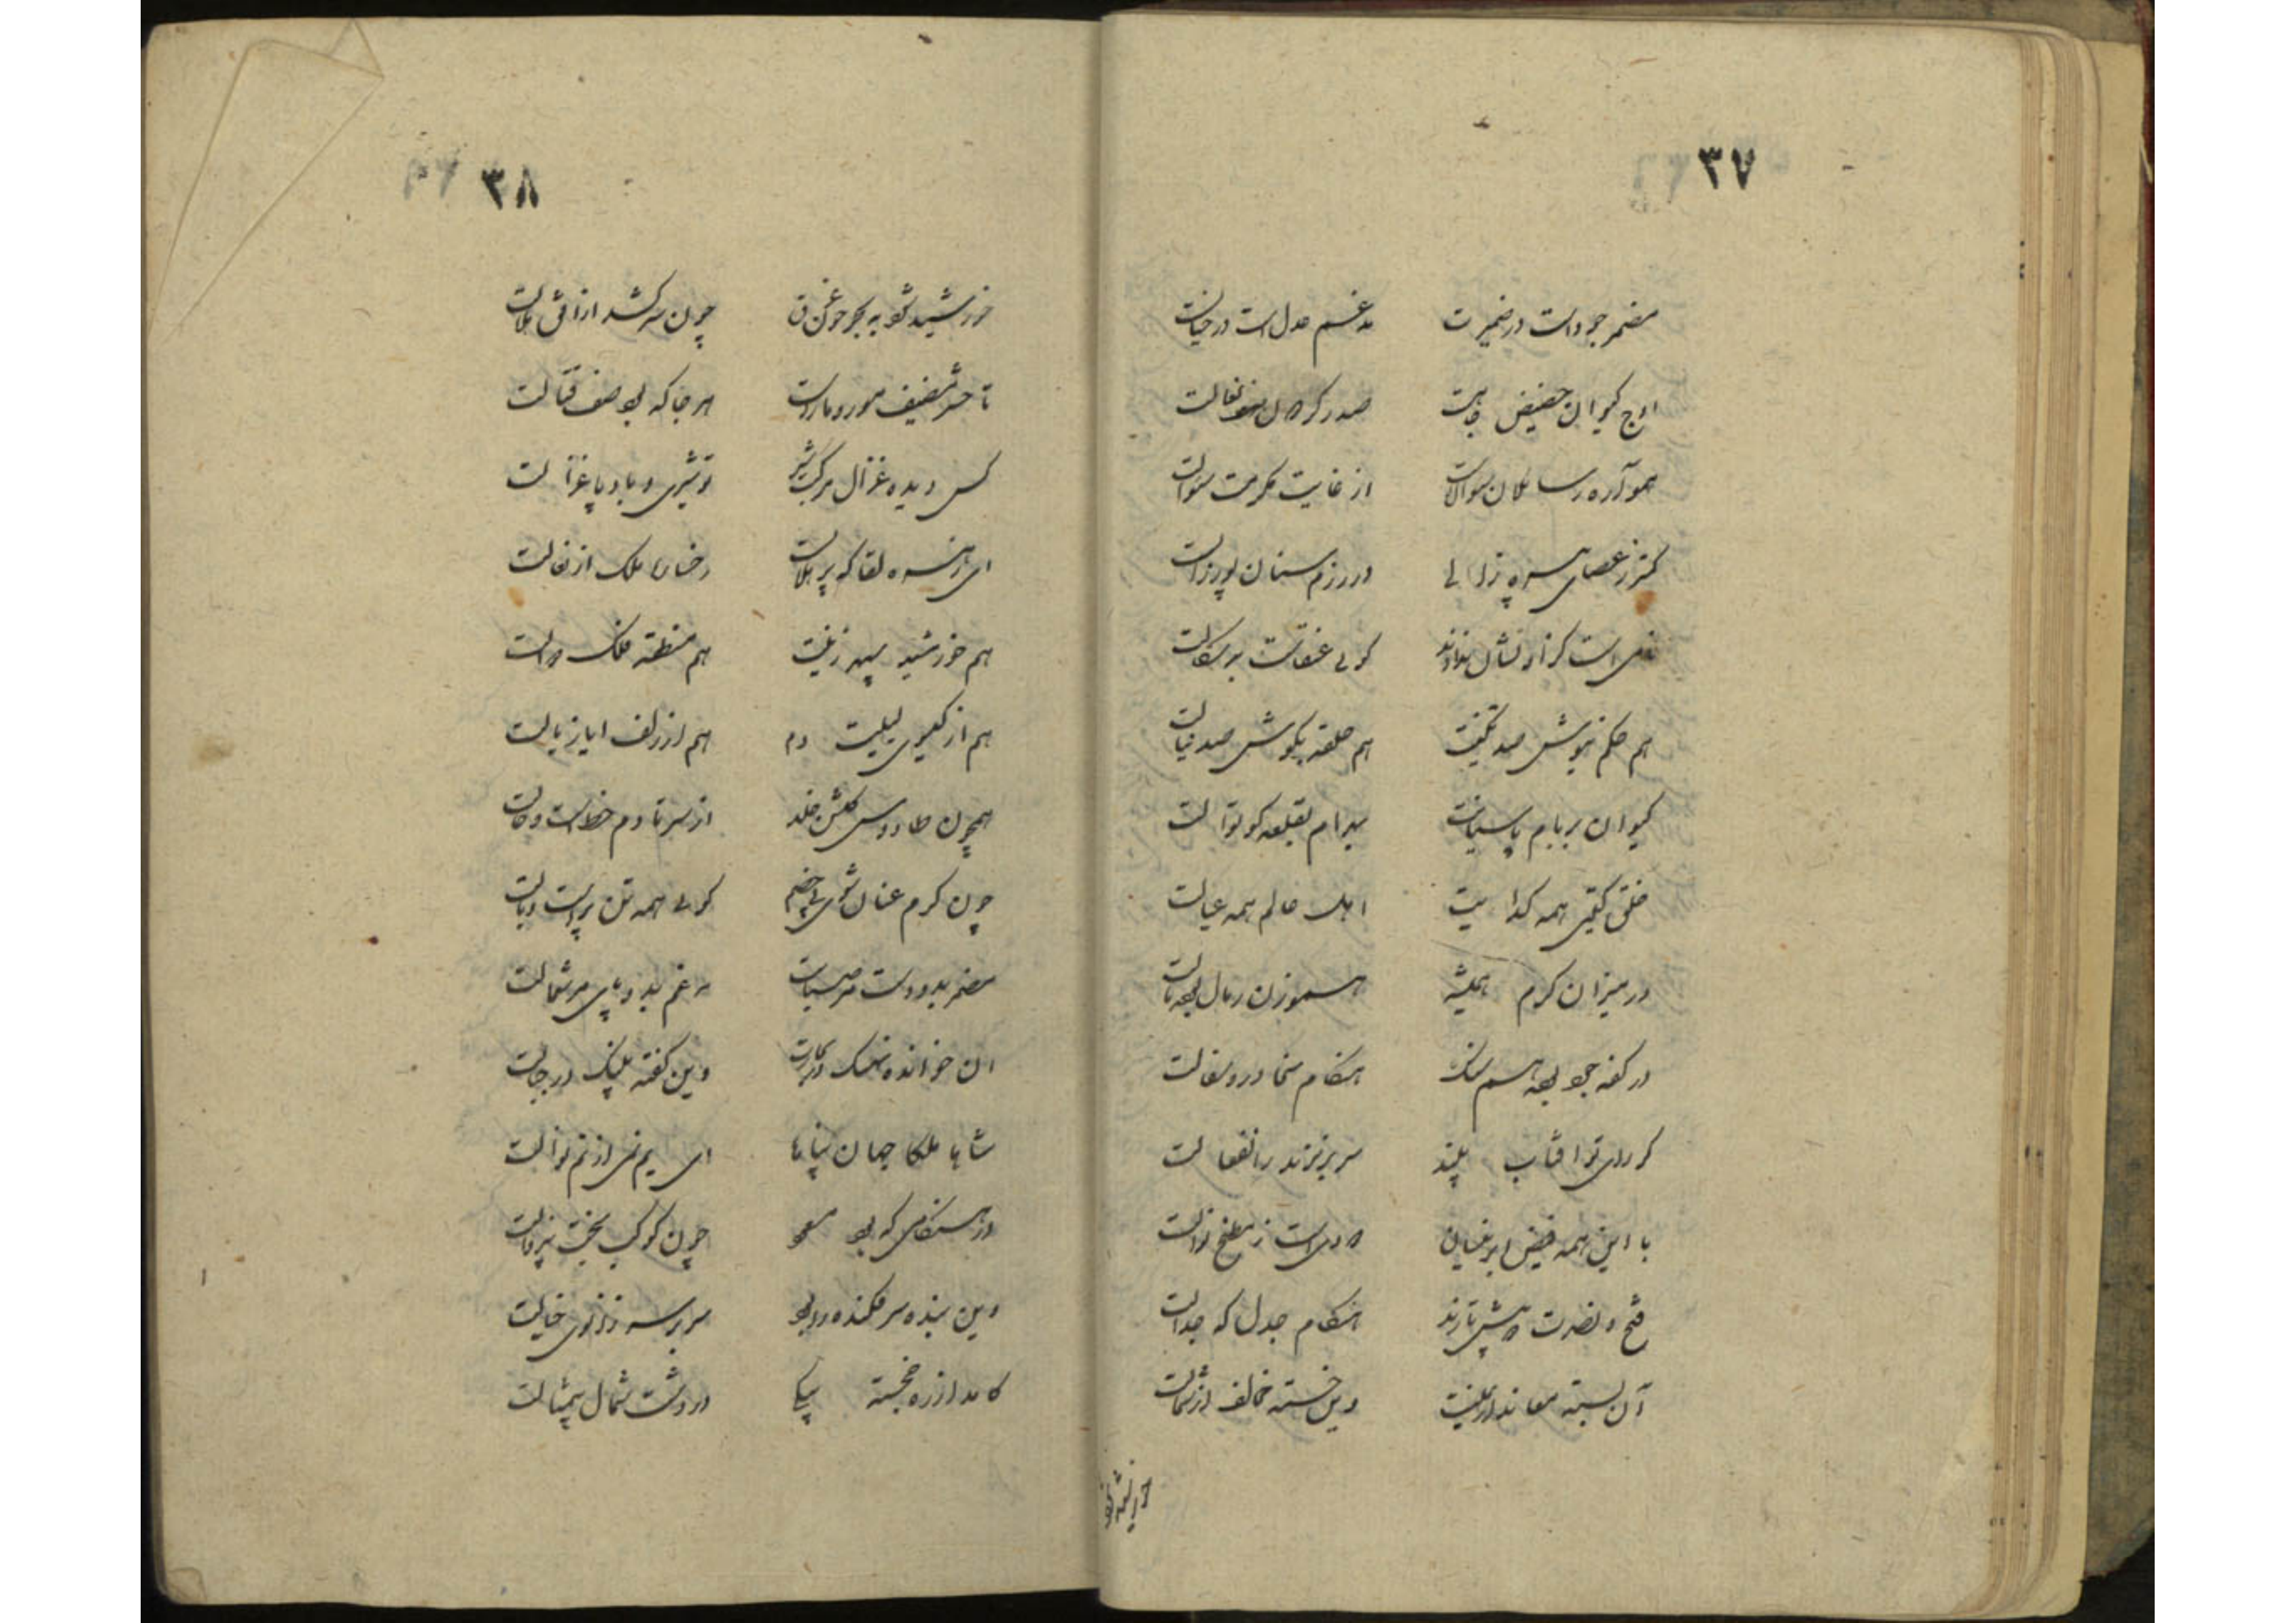 ۳۷
مضمر جود است در ضمیرت مدغم عدل است در خیالت
اوج کیوان حضیض جاهت صدر کردان صف نعالت
آرد سائلان سوالات از غایت مکرمت سئوالت
کمتر ز عصای پیره زالی در رزم سنان پور زالت
است کز او نشان ندادند گویی عنقاست بدسگالت
هم حکم نیوش صد تکینت هم حلقه بگوش صد نیالت
کیوان بر بام پاسبانت بهرام بقلعه کوتوالت
خلق گیتی همه گدایت اهل عالم همه عیالت
در میزان کرم همیشه هموزن رمال بوده مالت
در کفه جود بوده همسنگ هنگام سخا در و سفالت
کر رای تو آفتاب بیند سر بر نزند ز انفعالت
با این همه فیض ابر نیسان است ز مطبخ نوالت
فتح و نصرت پیش تازند هنگام جدل که جدالت
آن بسته معاند از یمینت وین خسته مخالف از شمالت
خورشید شود
۳۸
خورشید شود به بحر خون غرق چون سر کشد از افق هلالت
تا حشر مضیف مور و مار است هر جا که بود صف قتالت
کس دیده غزال مرکب شیر تو شیری و باد پا غزالت
ای زهره لقا که پر هلالست رخسار ملک از نعالت
هم خورشید سپهر زینت هم منطقه فلک دوالت
هم از گیسوی لیلیت دم هم از زلف ایاز یالت
همچون طاووس گلشن خلد از سر تا دم خط است و خالت
چون گرم عنان شوی پی خصم گویی همه تن پر است و بالت
مضمر بدو دست مر صبایت مدغم بدو پای مر شمالت
ان خوانده نهنگ در بحارت وین گفته پلنگ در جبالت
شاها ملکا جهان پناها ای یم نمی از نم نوالت
در هنگامی که بود مسعود چون کوکب بخت نیز فالت
وین بنده سر فکنده در بود سر بر سر زانوی خیالت
کامد از ره خجسته پیکی در دشت شمال بیمثالت